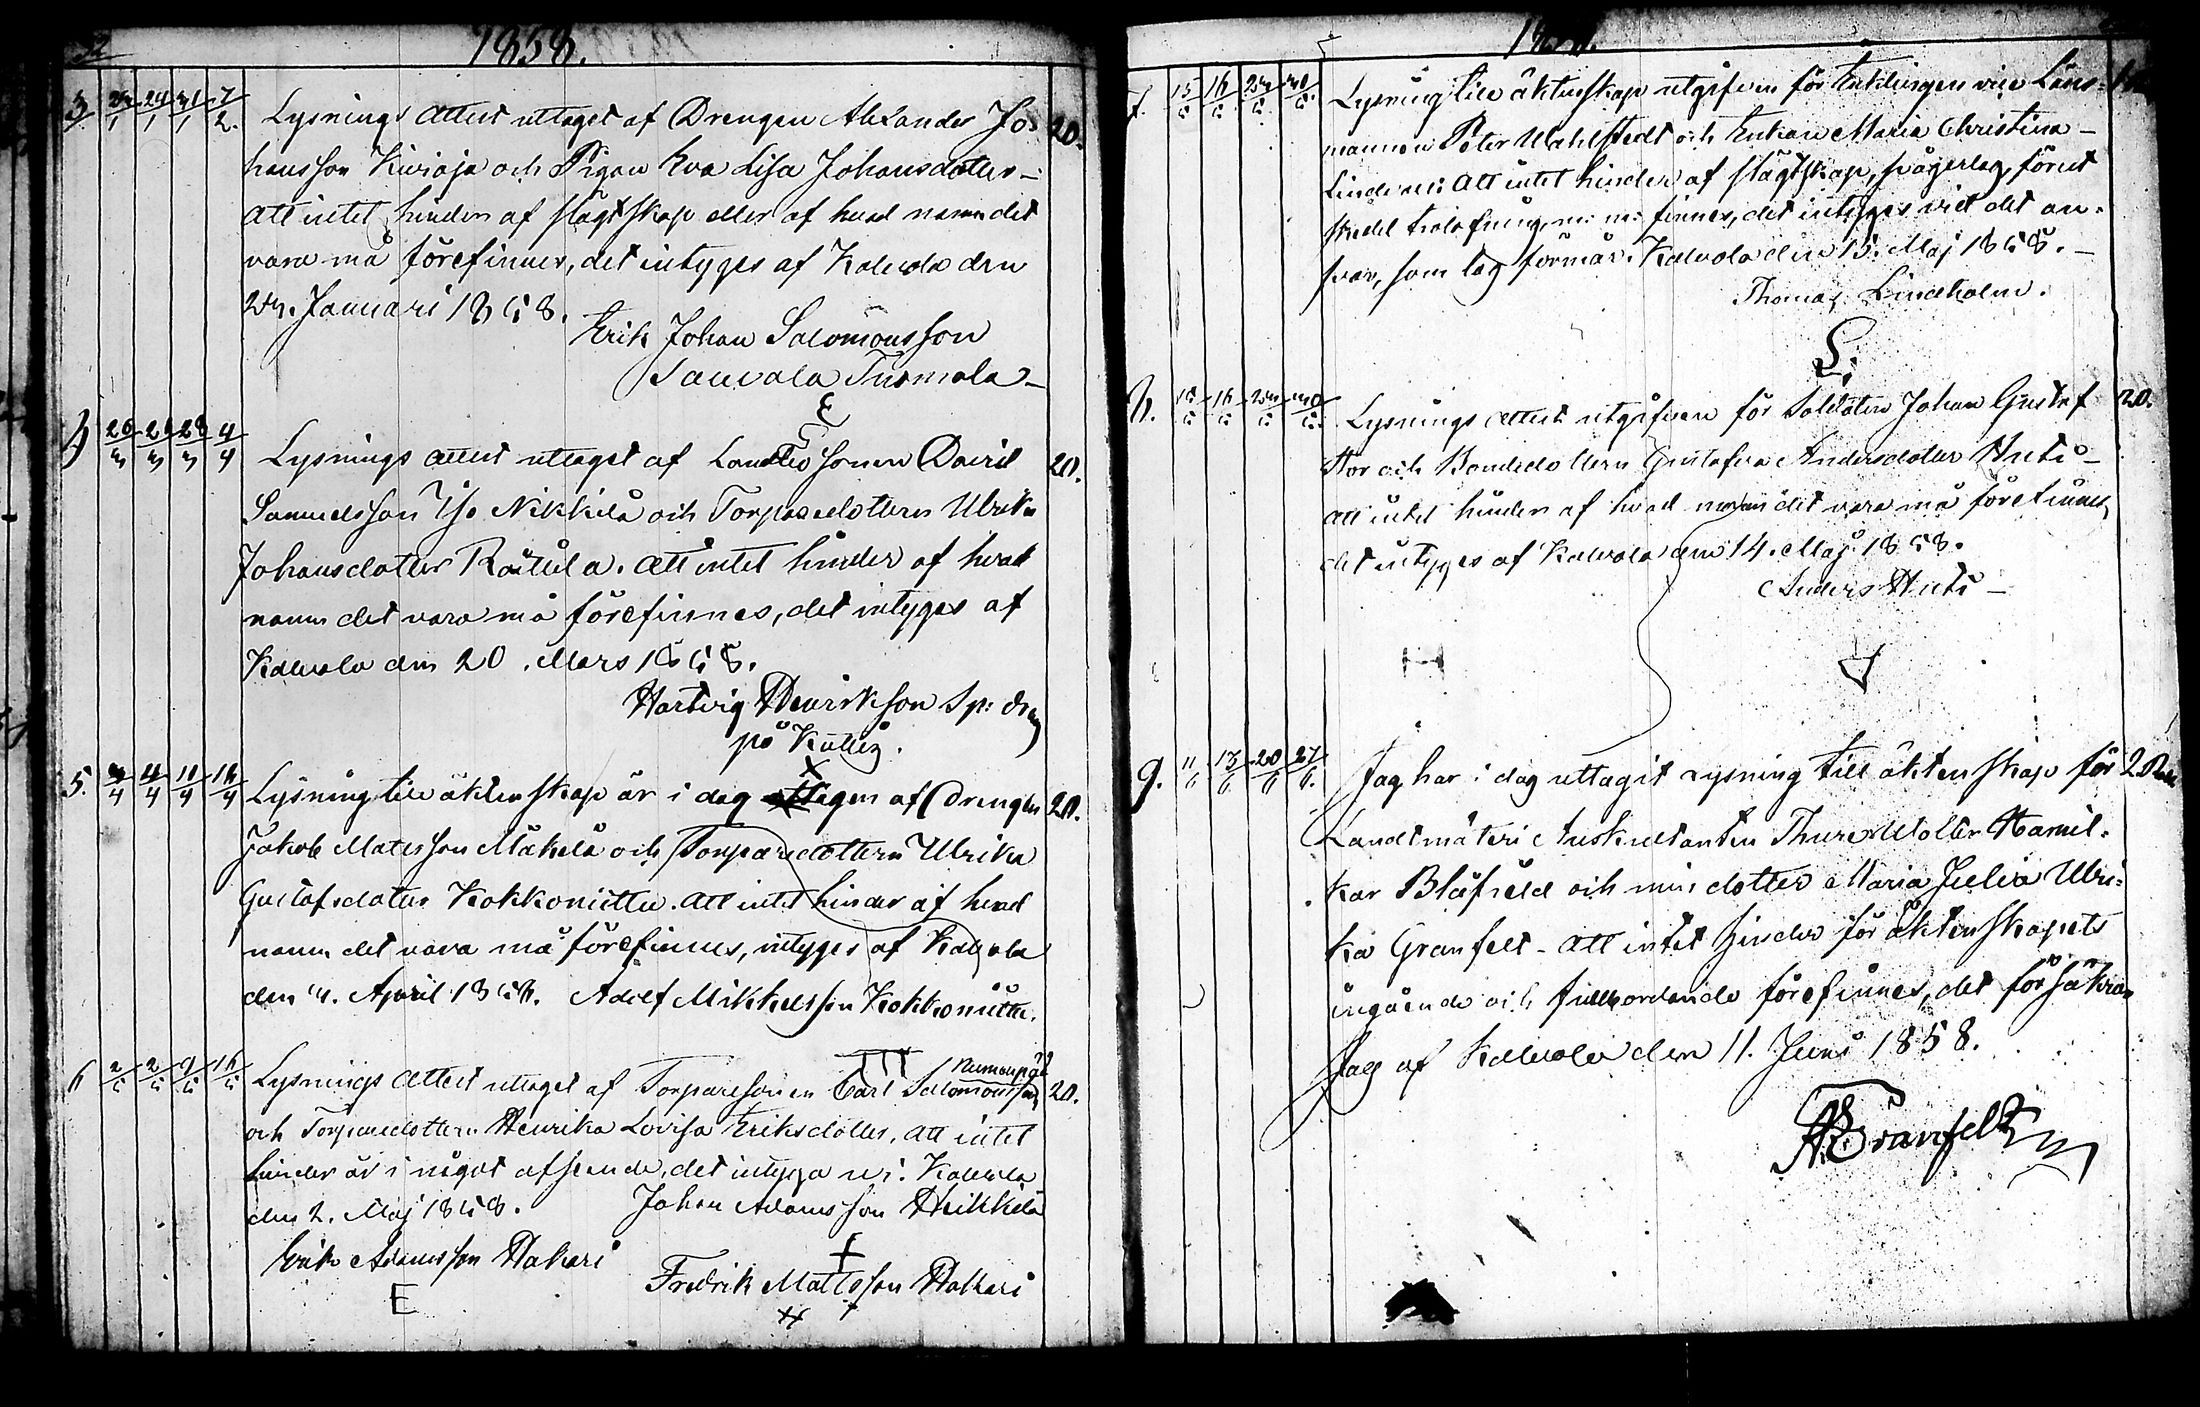 32
1858.
3. 23/1 24/1 31/1 7/2. Lysnings attest uttaget af Drengen Alexander Jo- 20.
hansson Kiviaja och Pigan Eva Lisa Johansdotter -
att intet hinder af slägtskap eller af hvad namn det
vara må förefinnes, det intyges af Kalvola den
23. Januari 1858.
Erik Johan Salomonsson
Sauvala Tuomola -
4) 20/3 21/3 28/3 4/4 Lysnings attest uttaget af Landbosonen David 20.
Samuelsson Iso Nikkilä och Torparedottern Ulrika
Johansdotter Rättilä. att intet hinder af hvad
namn det vara må förefinnes, det intyges af
Kalvola den 20. Mars 1858.
Hartvig Henriksson Sp: dreng
på Kutila.
X
5. 4/4 11/4 18/4 Lysning till äktenskap är i dag uttagen af Drengen 20.
Jakob Matsson Mäkelä och Torparedottern Ulrika
Gustafsdotter Kokkoniittu. att intet hinder af hvad
namn det vara må förefinnes, intyges af Kalvola
den 4. April 1858. Adolf Mikkelsson Kokkoniittu.
6 2/5 2/5 9/5 16/5 Lysnings attest uttaget af Torparesonen Carl Salomonsson 20.
och Torparedottern Henrika Lovisa Eriksdotter, att intet
hinder är i något afseende, det intyga vi. Kalvola
den 2. Maj 1858. Johan Adamsson Heikkilä
Erik Adamsson Hakari
E
Fredrik Mattsson Hakari
7. 15/5 16/5 23/5 Lysning till äktenskap utgifven för Enklingen vice Läns-
mannen Peter Wahlstedt och Enkan Maria Christina -
Linden: att intet hinder af slägtskap, svågerlag, förut
skedd trolofning, m: m: finnes, det intyges vid det an-
svar, som lag förmår. Kalvola den 15. Maj 1858. -
Thomas Lindholm.
8. 15/5 16/5 23/5 Lysnings attest utgifven för Soldaten Johan Gustaf 20.
Stor och Bondedottern Gustafva Andersdotter Huti -
att intet hinder af hvad namn det vara må förefinnes,
det intyges af Kalvola den 14. Maj 1858.
Anders Huti -
9. 11/6 13/6 20/6 27/6. Jag har i dag uttagit Lysning till äktenskap för
Landtmäteri Auskultanten Thure Walter Hamil-
kar Blåfield och min dotter Maria Julia Ulri-
ka Granfelt - att intet hinder för äktenskapets
ingående och fullbordande förefinnes, det försäkrar
Jag af Kalvola den 11. Juni 1858.
Granfelt